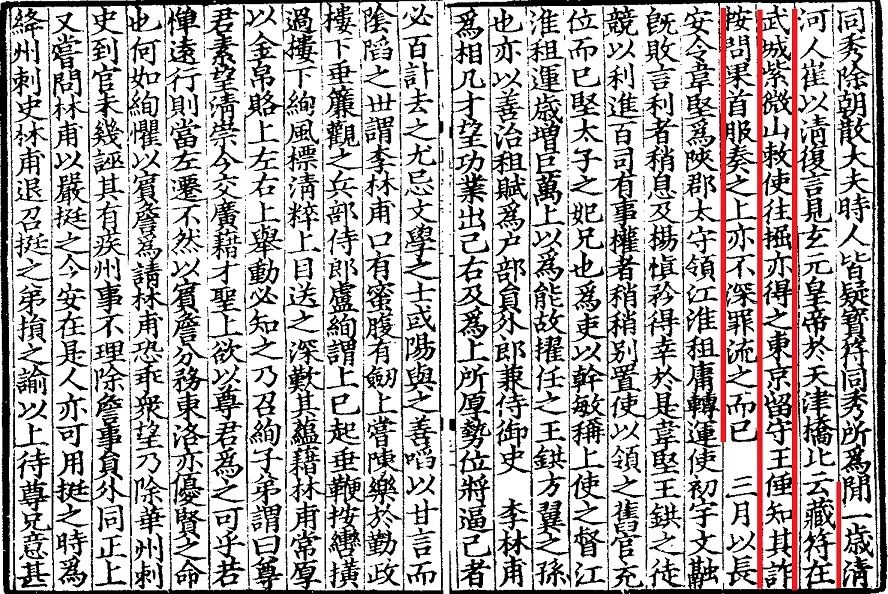 同秀除朝散大夫時人皆疑寶符同秀所爲間一歲清
河人崔以清復言見玄元皇帝於天津橋北云藏符在
武城紫微山敕使往掘亦得之東京留守王倕知其詐
按問果首服奏之上亦不深罪流之而已　三月以長
安令韋堅爲陝郡太守領江淮租庸轉運使初宇文融
旣敗言利者稍息及楊愼矜得幸於是韋堅王鉷之徒
競以利進百司有事權者稍稍別置使以領之舊官充
位而已堅太子之妃兄也爲吏以幹敏稱上使之督江
淮租運歲增巨萬上以爲能故擢任之王鉷方翼之孫
也亦以善治租賦爲户部員外郎兼侍御史　李林甫
爲相凡才望功業出己右及爲上所厚勢位將逼己者
必百計去之尤忌文學之士或陽與之善啗以甘言而
陰䧟之世謂李林甫口有蜜腹有劒上嘗陳樂於勤政
樓下垂簾觀之兵部侍郎盧絢謂上已起垂鞭按轡橫
過樓下絢風標清粹上目送之深歎其藴藉林甫常厚
以金帛賂上左右上舉動必知之乃召絢子弟謂曰尊
君素望清崇今交廣藉才聖上欲以尊君爲之可乎若
憚遠行則當左遷不然以賓詹分務東洛亦優賢之命
也何如絢懼以賓詹爲請林甫恐乖衆望乃除華州刺
史到官未幾誣其有疾州事不理除詹事員外同正上
又嘗問林甫以嚴挺之今安在是人亦可用挺之時爲
絳州刺史林甫退召挺之弟損之諭以上待尊兄意甚